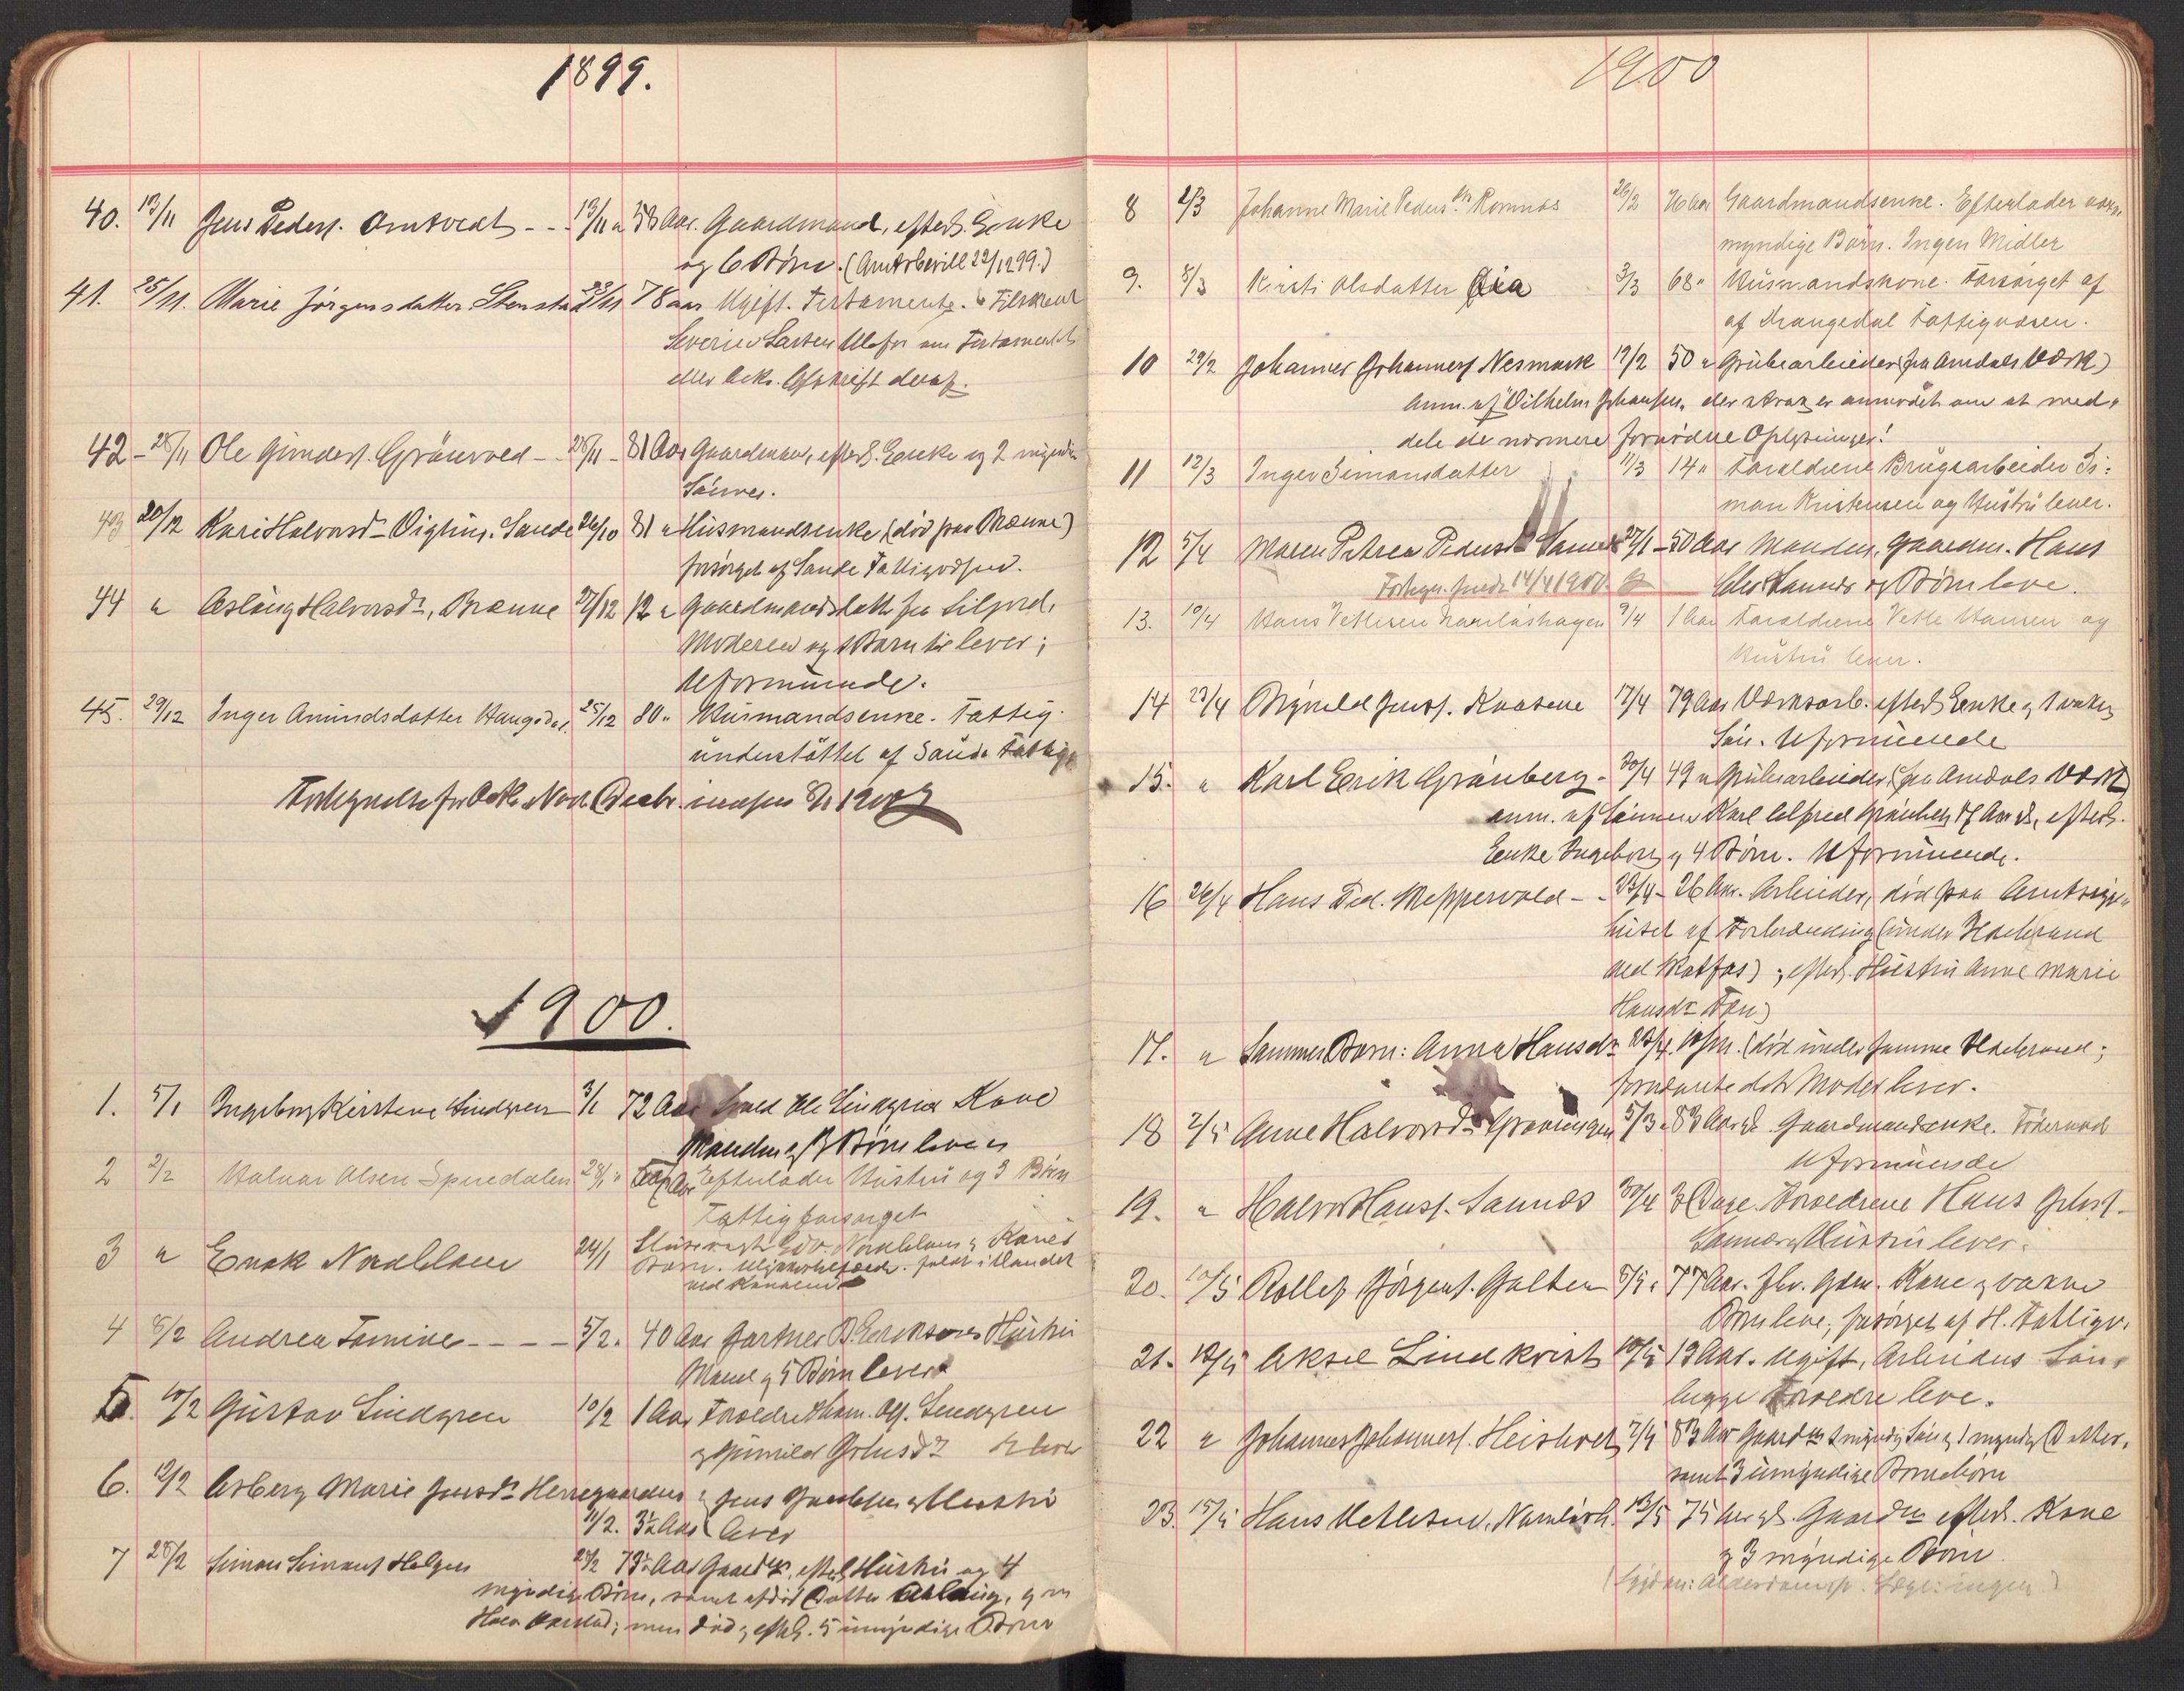 1899.
40. 13/11 Jens Peders. Omtvedt - - - 13/11 " 53 Aar. Gaardmand, efterl. Enke
og 6 Børn. (Amtsbevill 22/12 99.)
41. 25/11. Marie Jörgensdatter Stensta 23/11 78 aar Ugift. Testamente.
Severin Larsen Ulefos om Testamentet
eller bekr. Afskrift deraf.
42 - 28/11 Ole Gunders. Grönvold - 28/11 - 81 Aar Gaardman, efterl. Enke og 2 myndige
Sønner.
43 20/12 Kari Halvorsdr Sande 26/10 81 " Husmandsenke (död paa Brænne)
forsörget af Sande Fattigvæsen.
44 " Aslaug Halvorsdr, Brænne 27/12 12 " Gaardmandsdatter fra Siljord,
Moderen og 1 Barn til lever;
Uformuende.
45. 29/12 Inger Amundsdatter Haugsdal. 25/12 80 " Husmandsenke. Fattig
understöttet af Saude Fattigv.
Fortegnelse for Okt. Nov. Decbr. 1900
1900.
1. 5/1 Ingeborg Kirstene Lindgren 3/1 72 Aar Ole Lindgrens Kone
Manden og Börn lever
2 2/2 Halvor Olsen Spiredalen 28/1 " Aar Efterlader Hustru og 3 Börn
Fattigforsörget
3 " Enok Nordblom 24/1 Edv. Nordblom og Kones
Barn. faldt i Vandet
ved Kanalen
4 8/2 Andrea Tomine - - - - 5/2. 40 Aar Gartner B. Eriksens Hustru
Mand og 5 Börn lever
5. 10/2 Gustav Lindgren 10/2 1 Aar Forældre Thom. Alf. Lindgren
og Gunhild Johnsdr lever
6. 12/2 Asberg Marie Jensdr Herregaarden Jens Jacobsen og Hustru
11/2. 3 1/2 Aar lever
7 28/2 Simon Simons. Helgen 23/2 73 1/2 Aar Gaardm. efterl. Hustru og 4
myndige Börn, samt afdöd Datter Aslaug, g. m.
men död, efterl. 5 umyndige Börn
1900
8 2/3 Johanne Marie Pedersdr Romnes 26/2 76 Aar Gaardmandsenke. Efterlader voxne
myndige Börn. Ingen Midler
9. 8/3 Kirsti Olsdatter Lia 3/3 68 " Husmandskone. Forsörget af
af Drangedal Fattigvæsen.
10 29/2 Johannes Johannes. Nesmark 19/2 50 " Grubearbeider (fra Omdals Værk)
Anm. af Vilhelm Johansen, der strax er anmodet om at med-
dele de nærmere fornödne Oplysninger!
11 12/3 Inger Simonsdatter 11/3 14 " Forældrene Brugsarbeider Si-
mon Kristensen og Hustru lever.
12 5/4 Maren Petrea Pedersdr Sannes 27/1 - 50 Aar Manden, Gaardm. Hans
Sannes og Börn leve.
Fortegn. sendt 14/4 1900
13. 10/4 Hans Vetlesen Namlöshagen 9/4 1 Aar Forældrene Vetle Hansen og
Hustru lever.
14 23/4 Brynild Jens. Kaasene 17/4 79 Aar Værksarb. efterl. Enke og 1 voksen
Sön. Uformuende
15. " Karl Erik Grönberg - 20/4 49 " Grubearbeider (fra Omdals Værk)
anm. af Sönnen Karl Alfred Grönberg 17 Aar gl., efterl.
Enke Ingeborg og 4 Börn. Uformuende.
16 26/4 Hans Ped. Meppervold - - 23/4 - 26 Aar. Arbeider, död paa Amtssyge-
huset af Forbrænding (under Ildebrand
ved Rotfos); efterl. Hustru Anne Marie
Hansdr Töv)
17. " Sammes Barn: Anna Hansdr 23/4. (död under samme Ildebrand;
fornævnte dets Moder lever.
18 2/5 Anne Halvorsdr Graatingen 5/3 - 83 Aar gl. Gaardmandsenke. Föderaad
Uformuende
19. " Halvor Hans. Sannes 30/4 3 Dage. Forældrene Hans Johs.
Sannes og Hustru lever.
20. 10/5 Rollef Jörgens. Galten 8/5 " 77 Aar. fhv. Gdm. Kone og voxne
Börn leve; forsörget af H. Fattigv.
21. 12/5 Aksel Lindkvist 10/5 19 Aar. Ugift, Arbeiders Sön.
begge Forældre leve.
22 " Johannes Johannes. Heisholt 7/5 83 Aar Gaardm. 2 myndig Sön og 1 myndig Datter,
samt 3 umyndige Börnebörn
23. 15/5 Hans Vetlesen, Namlösh. 13/5 75 Aar gl. Gaardm. efterl. Kone
og 3 myndige Börn.
(Sygdom: Alderdomssv. Læge: ingen)